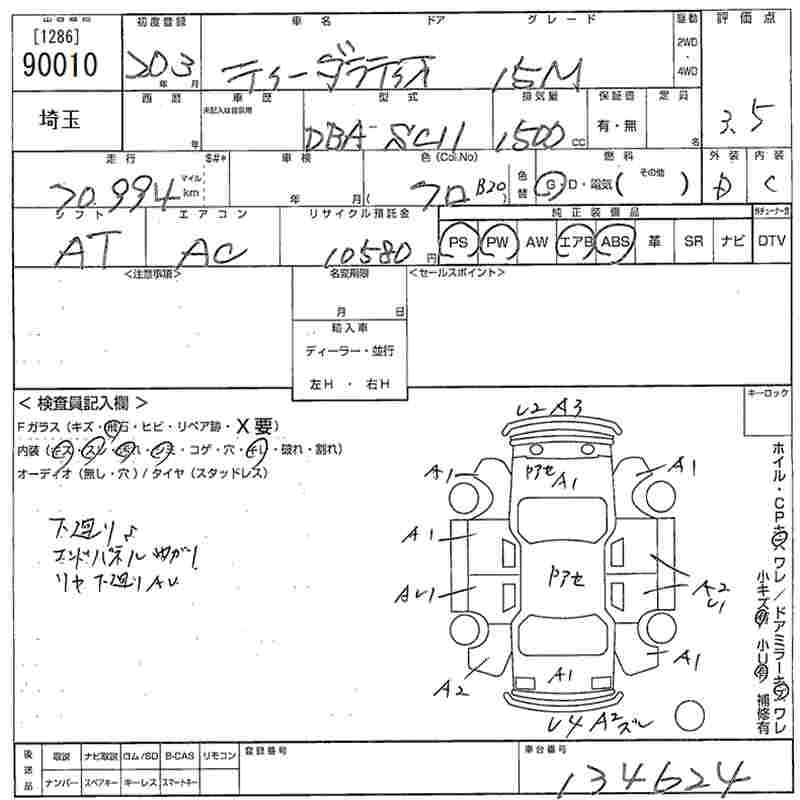 出品番号 初度登録 車名 ドア グレード 駆動 評価点
[1286]
90010 203 年 月 ティーダラティオ 15M 2WD・4WD 3.5
埼玉 西暦 年 車歴 未記入は自家用 型式 DBA-SC11 排気量 1500 cc 保証書 有・無 定員 名
走行 70.994 マイル km S#* 車検 年 月( 色(Col.No) クロ B20) 色替 燃料 G・D・電気( その他 ) 外装 D 内装 C
シフト AT エアコン AC リサイクル預託金 10580 円 純正装備品 PS PW AW エアB ABS 革 SR ナビ DTV
<注意事項> 名変期限 月 日 <セールスポイント>
輸入車
ディーラー・並行
左H ・ 右H
<検査員記入欄> キーロック
Fガラス(キズ・飛石・ヒビ・リペア跡・X要)
内装(キズ・スレ・汚れ・シミ・コゲ・穴・キレ・破れ・割れ)
オーディオ(無し・穴)/タイヤ(スタッドレス)
下廻り
エンドパネル曲がり
リヤ下廻りAU
U2 A3
A1 トアセ A1 A1
A1
AU1 トアセ A2 U1
A2 A1 A1
U4 A2 ズレ
ホイル・CPキズワレ/ドアミラーキズワレ
小キズ有 小U有 補修有
後送品 取説 ナビ取説 ロム/SD B-CAS リモコン 登録番号 車台番号
ナンバー スペアキー キーレス スマートキー 134624